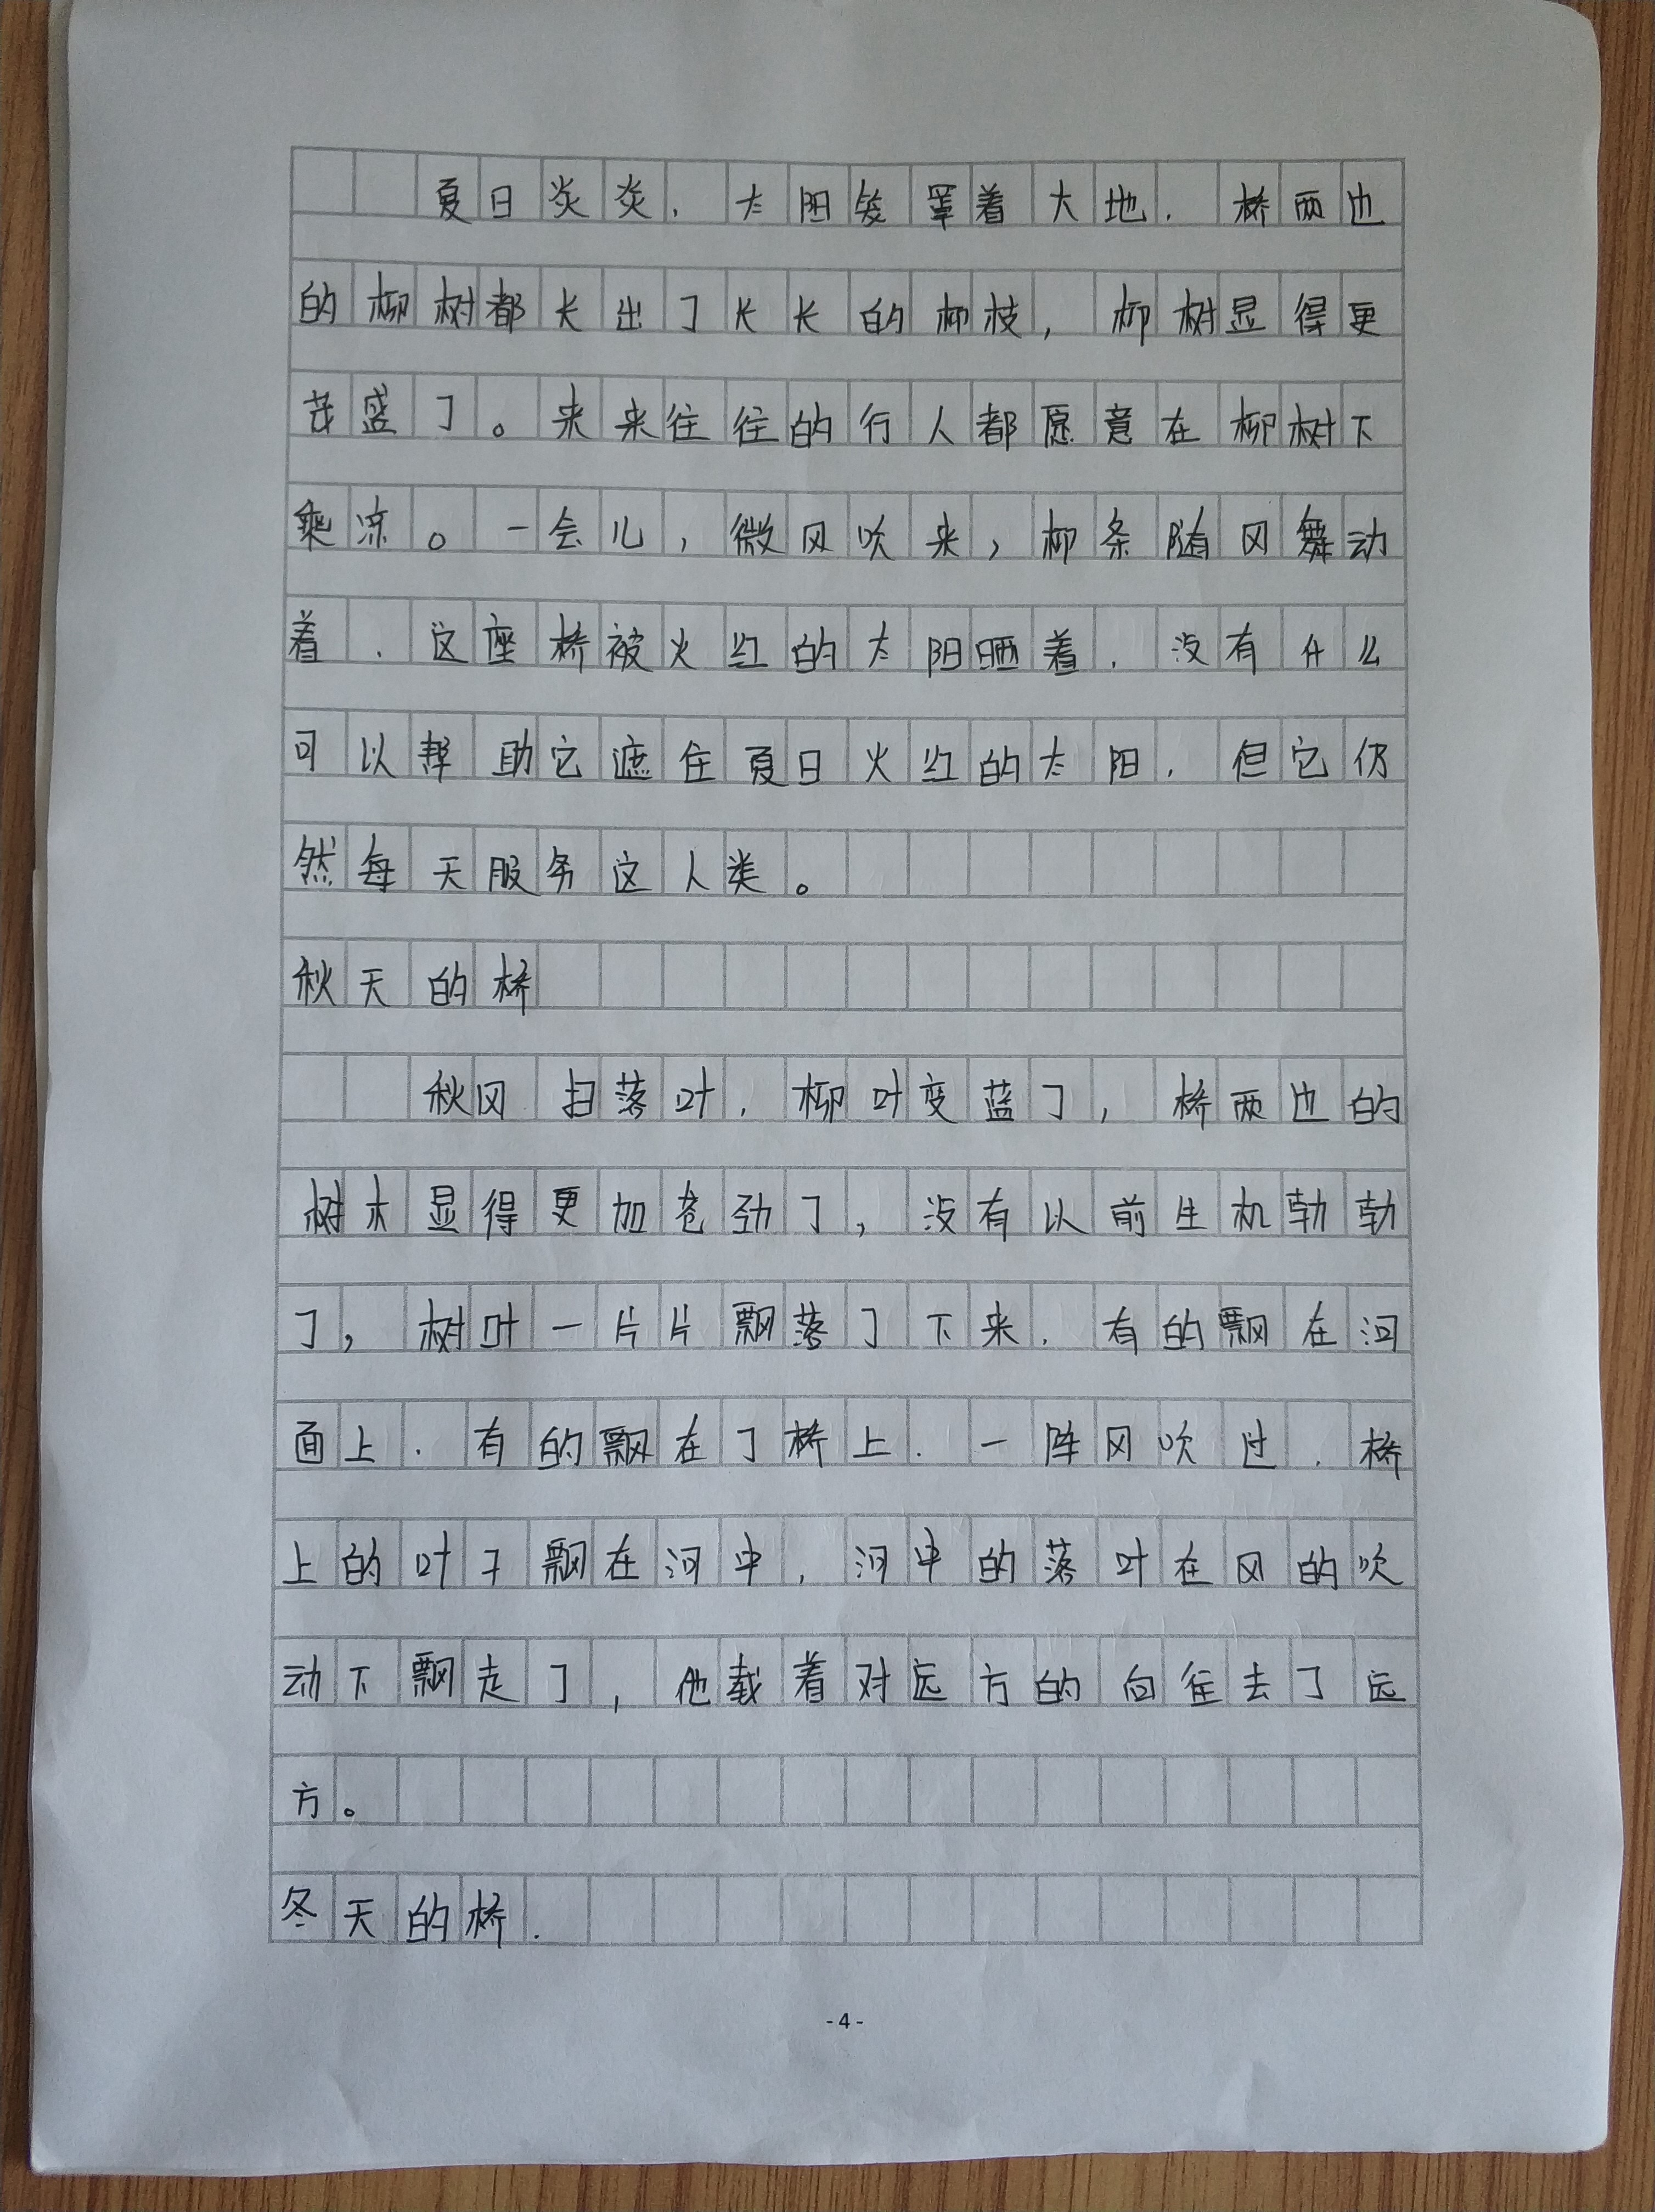 夏日炎炎，太阳笼罩着大地，桥两边
的柳树都长出了长长的柳枝，柳树显得更
茂盛了。来来往往的行人都愿意在柳树下
乘凉。一会儿，微风吹来，柳条随风舞动
着，这座桥被火红的太阳晒着，没有什么
可以帮助它遮住夏日火红的太阳，但它仍
然每天服务这人类。
秋天的桥
秋风扫落叶，柳叶变蓝了，桥两边的
树木显得更加苍劲了，没有以前生机勃勃
了，树叶一片片飘落了下来，有的飘在河
面上，有的飘在了桥上，一阵风吹过，桥
上的叶子飘在河中，河中的落叶在风的吹
动下飘走了，他载着对远方的向往去了远
方。
冬天的桥.
- 4 -